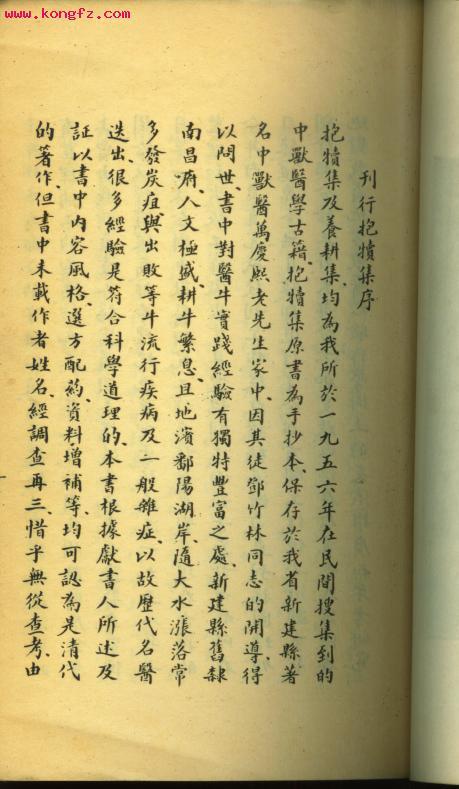 www.kongfz.com
刊行抱犢集序
抱犢集及養耕集、均為我所於一九五六年在民間搜集到的
中獸醫學古籍、抱犢集原書為手抄本、保存於我省新建縣著
名中獸醫萬慶熙老先生家中、因其徒鄧竹林同志的開導、得
以問世、書中對醫牛實踐經驗有獨特豐富之處、新建縣舊隸
南昌府、人文極盛、耕牛繁息、且地濱鄱陽湖岸、隨大水漲落常
多發炭疽與出敗等牛流行疾病及一般雜症、以故歷代名醫
迭出、很多經驗是符合科學道理的、本書根據獻書人所述及
証以書中內容風格、選方配药、資料增補等、均可認為是清代
的著作、但書中未載作者姓名、經調查再三、惜乎無從查考、由